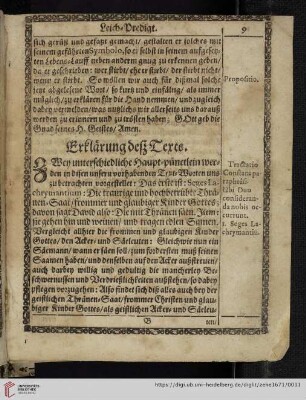 Leich-Predigt.
9
sich gerüst und gefast gemacht/ gestalten er solches mit
seinem geführten Symbolo, so er selbst in seinem auffgesetz-
ten Lebens-Lauff neben anderm gnug zu erkennen geben/
da er geschrieben: wer stirbt/ ehe er stirbt/ der stirbt nicht/
wenn er stirbt. So wollen wir auch für dißmal solche
Text abgelesene Wort/ so kurtz und einfältig/ als immer
müglich/ zu erklären für die Hand nemen/ und zugleich
dabey vermelden/ was nutzlichs wir allerseits uns darauß
werden zu erinnern und zu trösten haben; GOtt geb die
Gnad seines H. Geistes/ Amen.
Propositio.
Erklärung deß Texts.
ZWey unterschiedliche Haupt-püncten werden
in disen unsern vorhabenden Text-Worten uns
zu betrachten vorgestellet: Das erste ist: Seges La-
chrymantium: Die traurige und hochbetrübte Thrä-
nen-Saat frommer und glaubiger Kinder Gottes;
davon sagt David also: Die mit Thränen säen. Item:
sie gehen hin und weinen/ und tragen edlen Samen.
Vergleicht allhier die frommen und glaubigen Kinder
Gottes/ den Acker- und Säeleuten: Gleichwie nun ein
Sämann/ wann er säen soll/ zum fordersten muß seinen
Saamen haben/ und denselben auf den Acker außstreuen/
auch darbey willig und gedultig die mancherley Be-
schwernussen und Verdrießlichkeiten außstehen/ so dabey
pflegen vorzugehen: Also findet sich diß alles auch bey der
geistlichen Thränen-Saat/ frommer Christen und glau-
biger Kinder Gottes/ als geistlichen Acker- und Säeleu-
B
ten/
Tractatio
Consideranda nobis oc-
currunt.
1. Seges La-
chrymantiũ.
https://digi.ub.uni-heidelberg.de/diglit/zehe1671/0011
UNIVERSITÄTS-
BIBLIOTHEK
HEIDELBERG